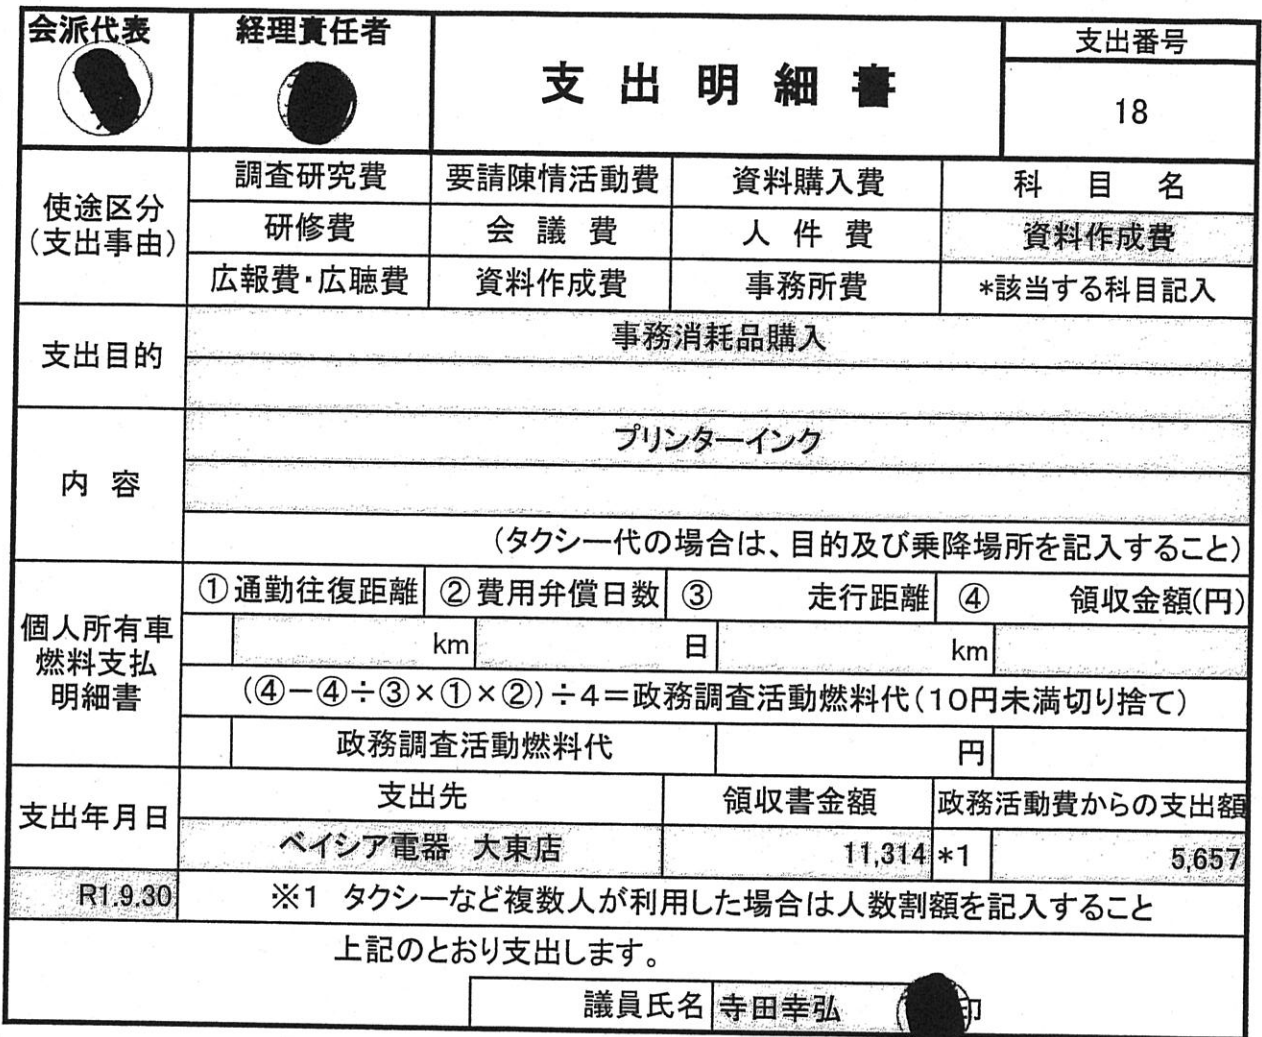 会派代表 経理責任者 支出明細書 支出番号
18
使途区分
(支出事由)
調査研究費 要請陳情活動費 資料購入費 科目名
研修費 会議費 人件費 資料作成費
広報費・広聴費 資料作成費 事務所費 *該当する科目記入
支出目的
事務消耗品購入
内容
プリンターインク
(タクシー代の場合は、目的及び乗降場所を記入すること)
個人所有車
燃料支払
明細書
①通勤往復距離 ②費用弁償日数 ③ 走行距離 ④ 領収金額(円)
km 日 km
(④-④÷③×①×②)÷4=政務調査活動燃料代(10円未満切り捨て)
政務調査活動燃料代 円
支出年月日 支出先 領収書金額 政務活動費からの支出額
ベイシア電器 大東店 11,314 *1 5,657
R1.9.30 ※1 タクシーなど複数人が利用した場合は人数割額を記入すること
上記のとおり支出します。
議員氏名 寺田幸弘 印